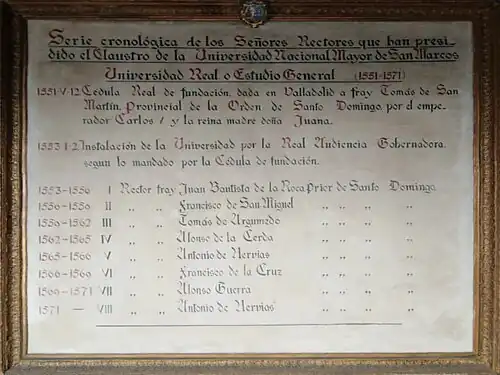 Serie cronológica de los Señores Rectores que han presi-
dido el Claustro de la Universidad Nacional Mayor de San Marcos
Universidad Real o Estudio General (1551-1571)
1551-V-12 Cédula Real de fundación, dada en Valladolid a fray Tomás de San
Martín, Provincial de la Orden de Santo Domingo, por el empe-
rador Carlos I y la reina madre doña Juana.
1553-I-2 Instalación de la Universidad por la Real Audiencia Gobernadora,
segun lo mandado por la Cédula de fundación.
1553-1556 I Rector fray Juan Bautista de la Roca Prior de Santo Domingo
1556-1556 II " " Francisco de San Miguel " " "
1556-1562 III " " Tomás de Argumedo " " "
1562-1565 IV " " Alonso de la Cerda " " "
1565-1566 V " " Antonio de Hervias " " "
1566-1569 VI " " Francisco de la Cruz " " "
1569-1571 VII " " Alonso Guerra " " "
1571 — VIII " " Antonio de Hervias " " "